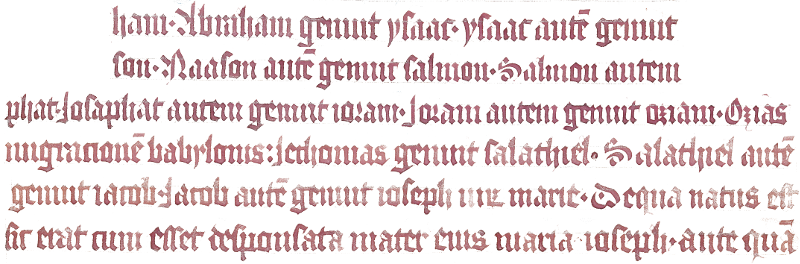 ham. Abraham genuit ysaac. ysaac autē genuit
son. Naason autē genuit salmon. Salmon autem
phat. Josaphat autem genuit ioram. Joram autem genuit oziam. Ozias
migrationē babylonis: Jechonias genuit salathiel. Salathiel autē
genuit iacob. Jacob autē genuit ioseph uiꝝ marie. De qua natus est
sic erat cum esset desponsata mater eius maria ioseph. ante quā